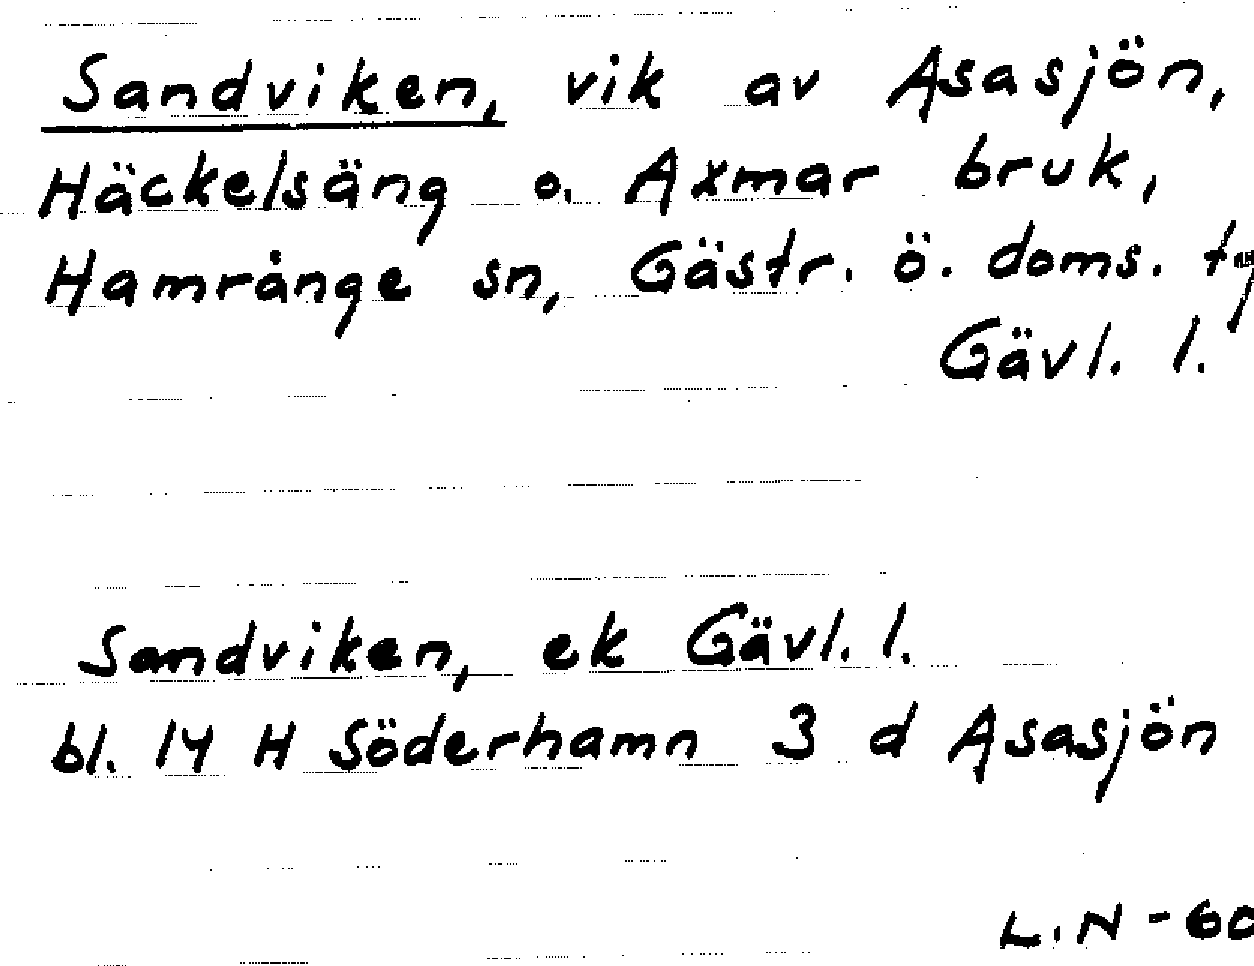 Sandviken, vik av Asasjön,
Häckelsäng o. Axmar bruk,
Hamrånge sn, Gästr. ö. doms.
Gävl. l.
Sandviken, ek Gävl. l.
bl. 14 H Söderhamn 3 d Asasjön
L.N - 60